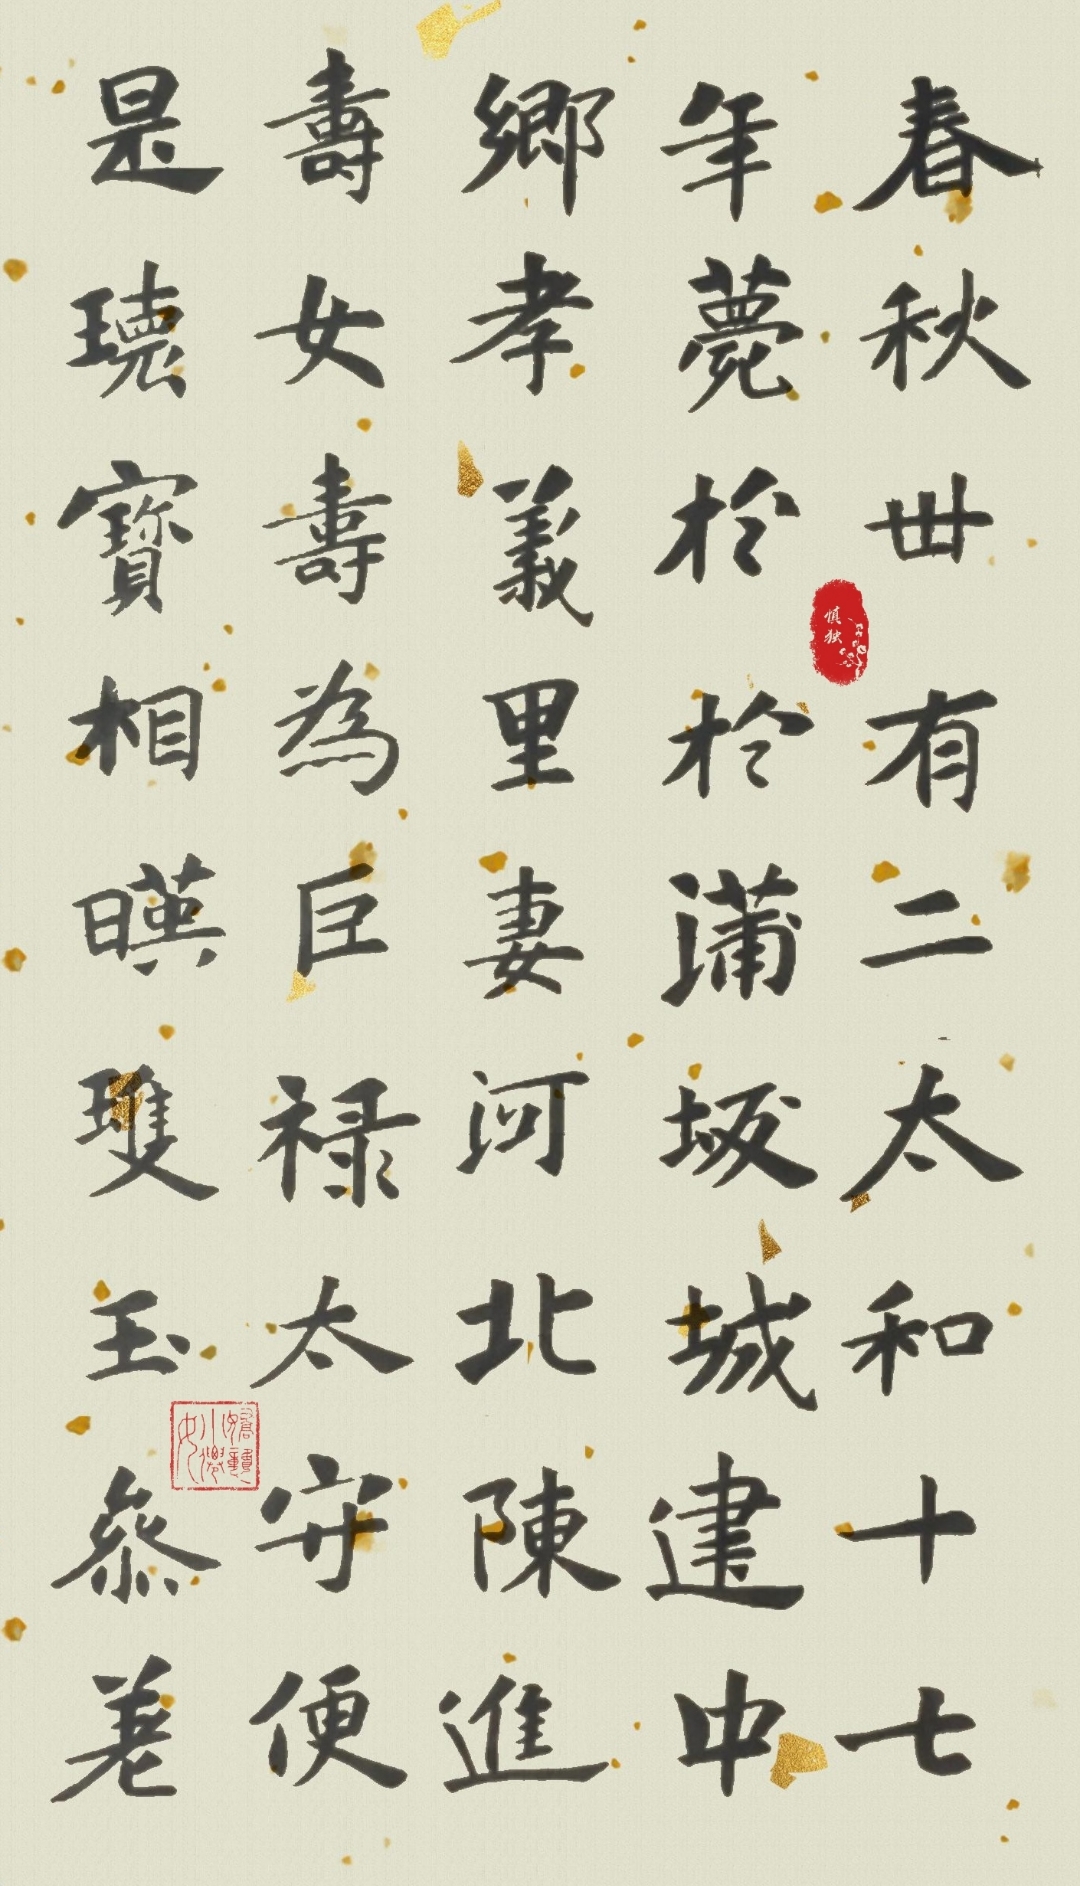 春秋丗有二太和十七
年薨於於蒲坂城建中
鄉孝義里妻河北陳進
壽女壽為巨禄太守便
是瓌寶相暎雙玉叅差
慎独